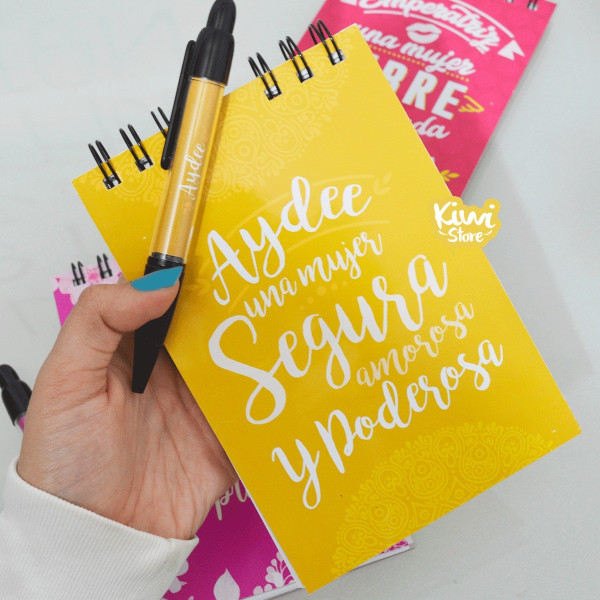 Emperatriz
una mujer
Aydee
Aydee
una mujer
Segura
amorosa
y Poderosa
Kiwi
Store